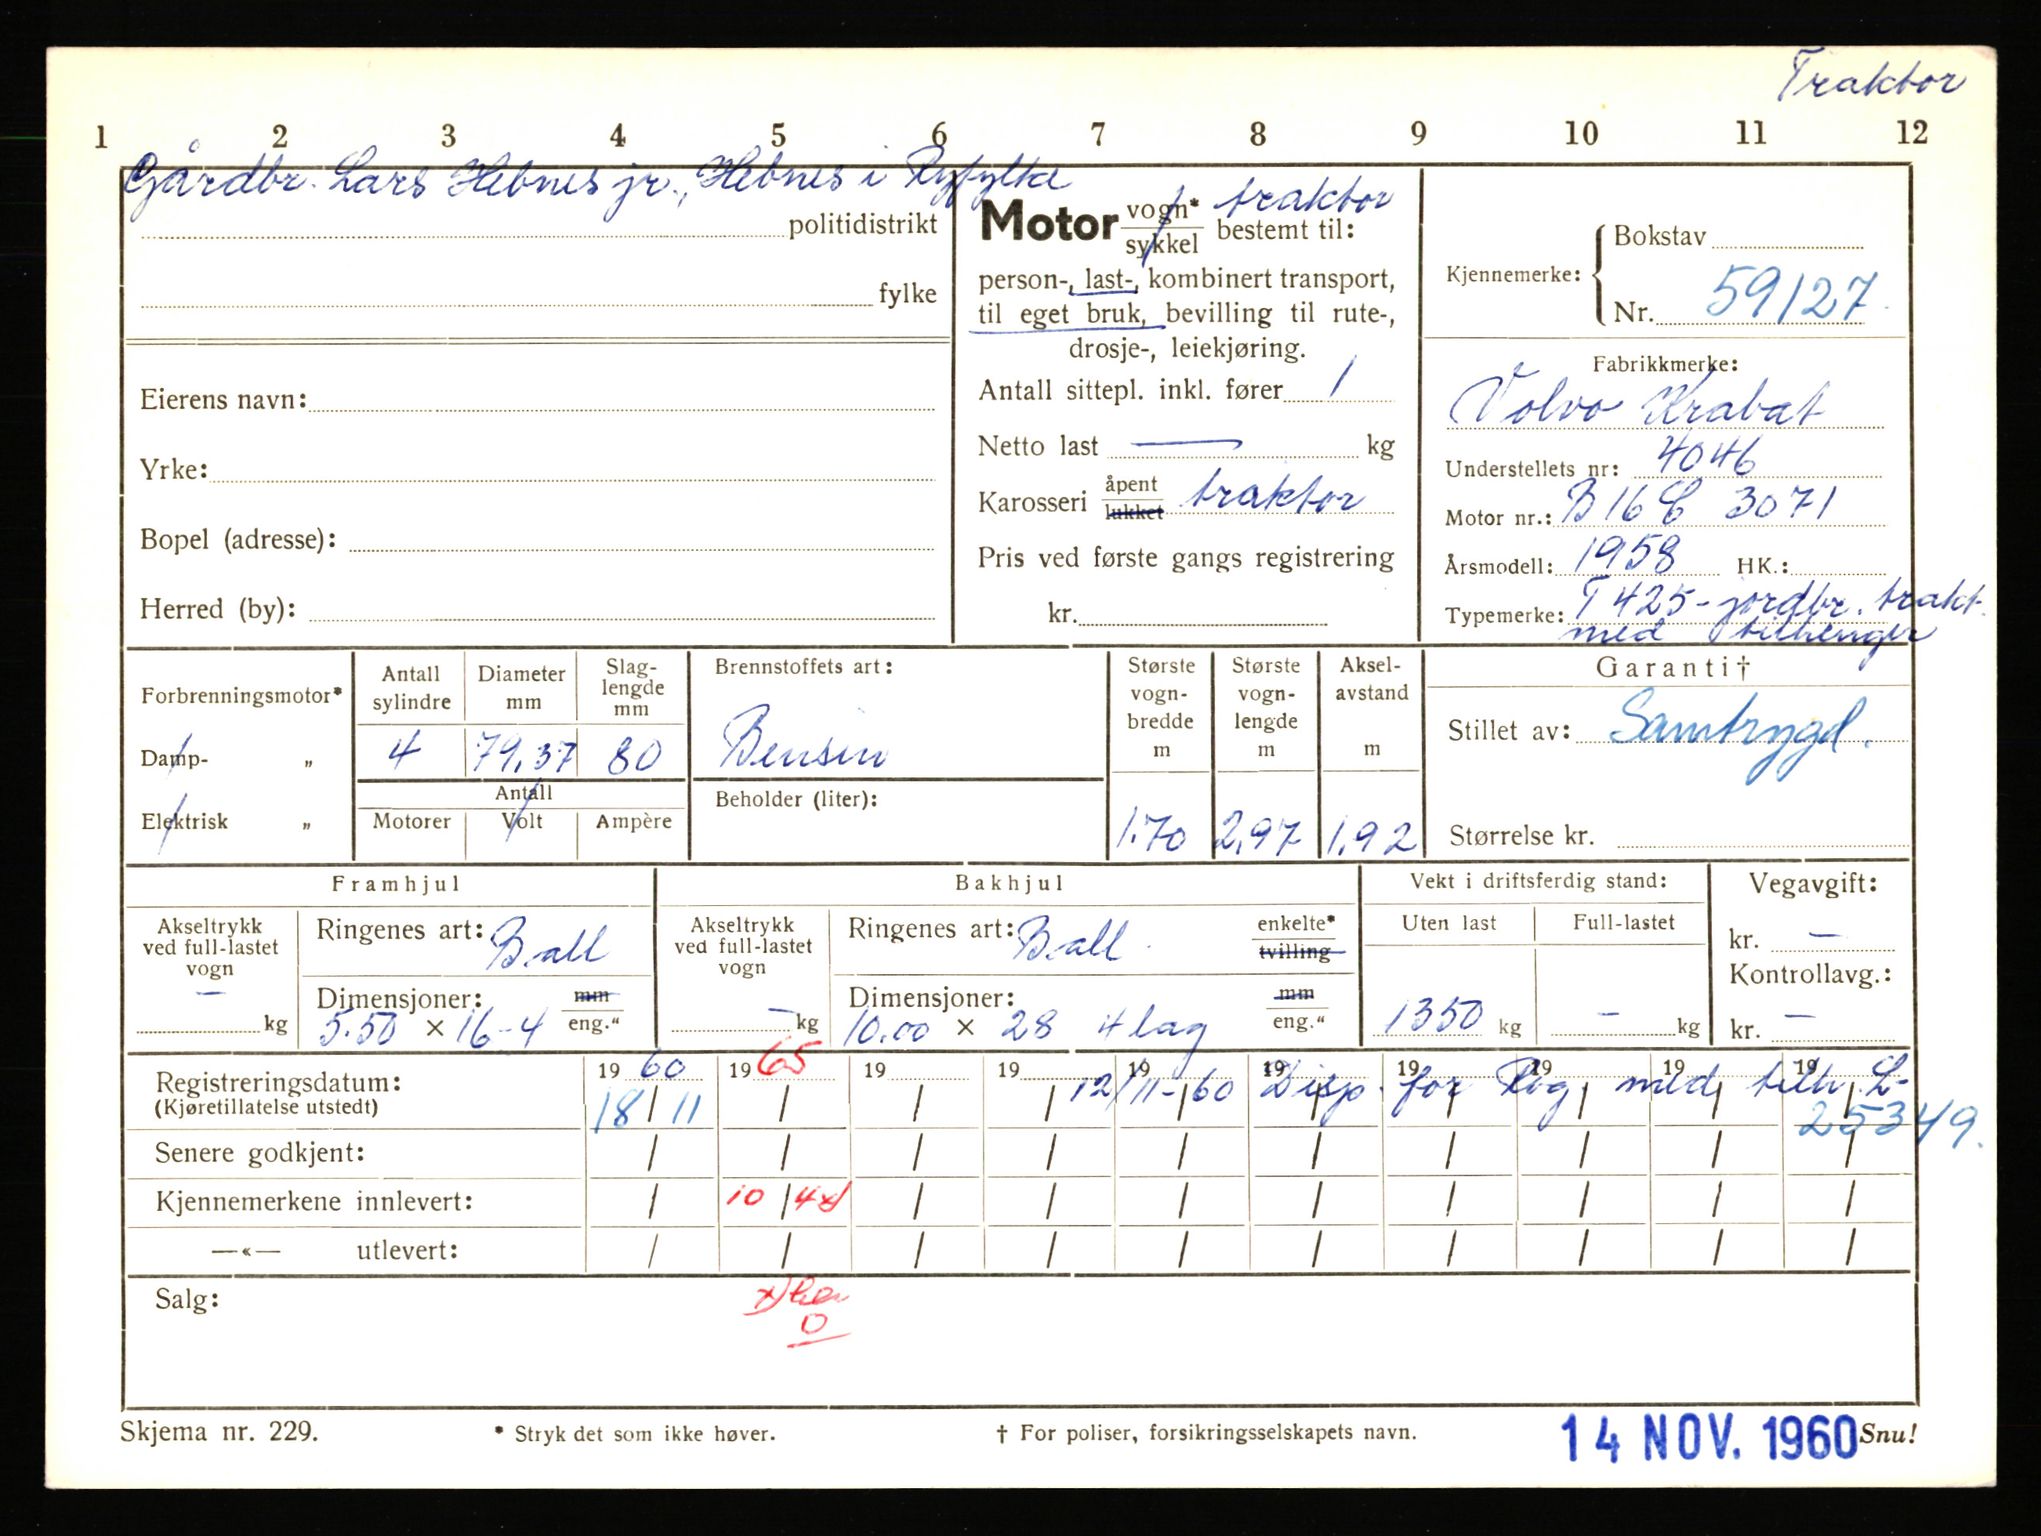 Traktor
1 2 3 4 5 6 7 8 9 10 11 12
Gårdbr. Lars Hebnes jr., Hebnes i Ryfylke
politidistrikt
fylke
Eierens navn:
Yrke:
Bopel (adresse):
Herred (by):
Motor vogn* sykkel traktor bestemt til:
person-, last-, kombinert transport,
til eget bruk, bevilling til rute-,
drosje-, leiekjøring.
Antall sittepl. inkl. fører 1
Netto last — kg
Karosseri åpent lukket traktor
Pris ved første gangs registrering
kr.
Kjennemerke: Bokstav
Nr. 59127
Fabrikkmerke:
Volvo Krabat
Understellets nr: 4046
Motor nr.: B 16 C 3071
Årsmodell: 1958 HK.:
Typemerke: T 425 - jordbr. trakt.
med tilhenger
Forbrenningsmotor*
Damp- „
Elektrisk „
Antall sylindre
4
Diameter mm
79,37
Slag-lengde mm
80
Antall
Motorer Volt Ampère
Brennstoffets art:
Bensin
Beholder (liter):
Største vogn-bredde m
1.70
Største vogn-lengde m
2,97
Aksel-avstand m
1,92
Garanti†
Stillet av: Samtrygd.
Størrelse kr.
Framhjul
Akseltrykk ved full-lastet vogn
— kg
Ringenes art: Ball
Dimensjoner: mm eng."
5.50 × 16-4
Bakhjul
Akseltrykk ved full-lastet vogn
— kg
Ringenes art: Ball. enkelte* tvilling
Dimensjoner: mm eng."
10.00 × 28 4 lag
Vekt i driftsferdig stand:
Uten last Full-lastet
1350 kg — kg
Vegavgift:
kr. —
Kontrollavg.:
kr. —
Registreringsdatum: 19 60 19 65 19 19 19 19 19 19 19 19
(Kjøretillatelse utstedt) 18/11 / / / / / / / / /
12/11-60 Disp. for Rog. med tilh. L-
25349.
Senere godkjent: / / / / / / / / / /
Kjennemerkene innlevert: / 10/4 x) / / / / / / / /
—«— utlevert: / / / / / / / / / /
Salg:
x)
0
Skjema nr. 229.
* Stryk det som ikke høver.
† For poliser, forsikringsselskapets navn.
14 NOV. 1960
Snu!